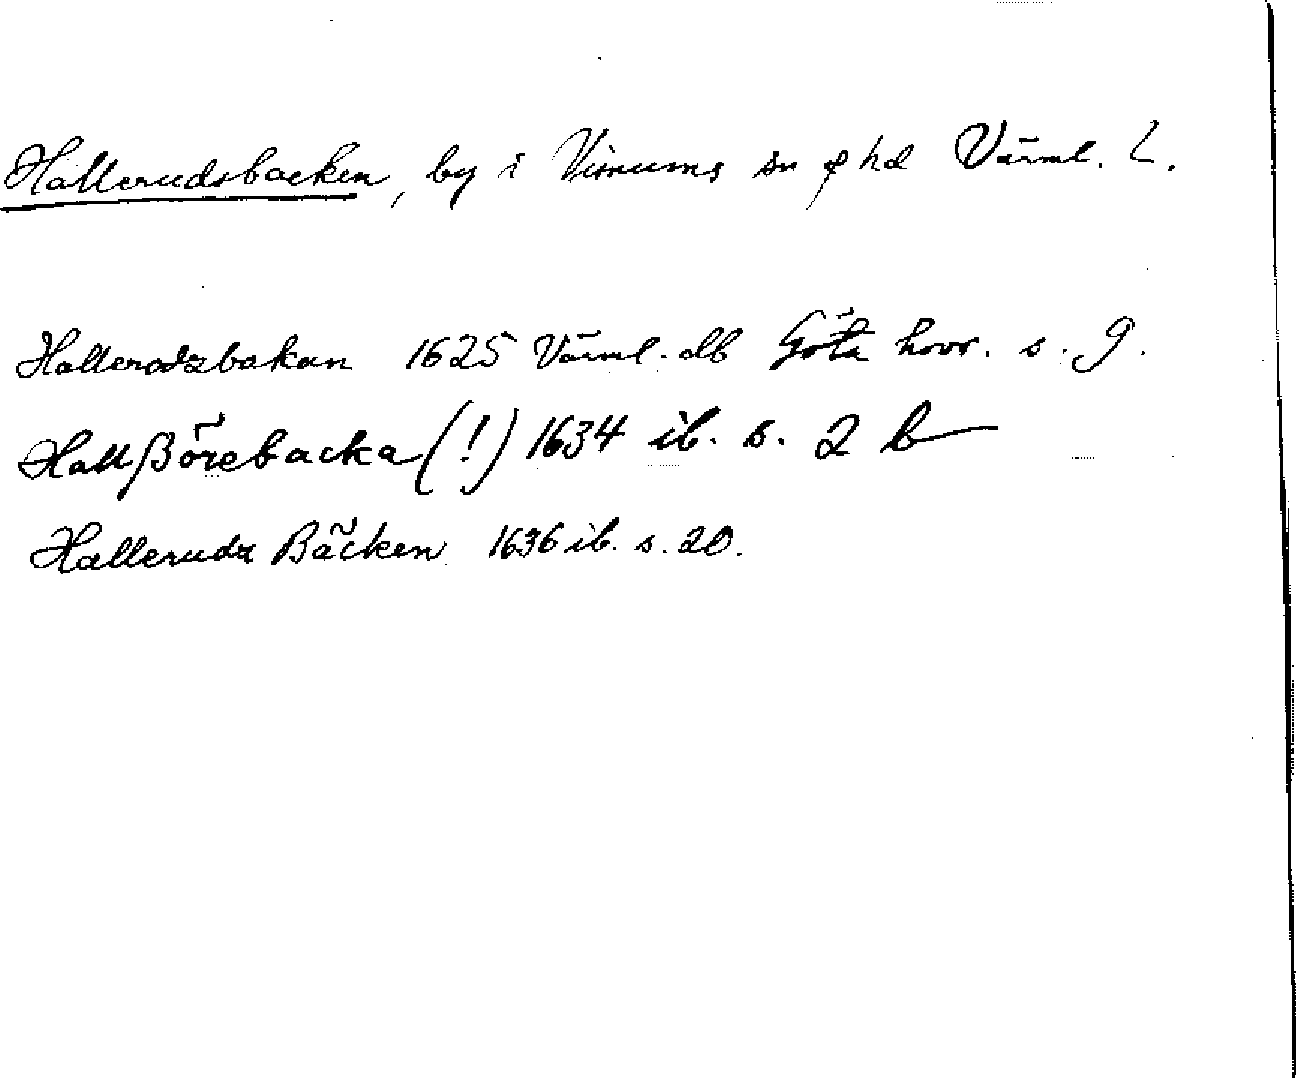 Hallerudsbacken, by i Visnums sn o hd Värml. L.
Hallerodzbakan 1625 Värml. db Göta hovr. s. 9.
Hallßörebacka (!) 1634 ib. s. 2 b
Halleruda Bäcken 1636 ib. s. 20.